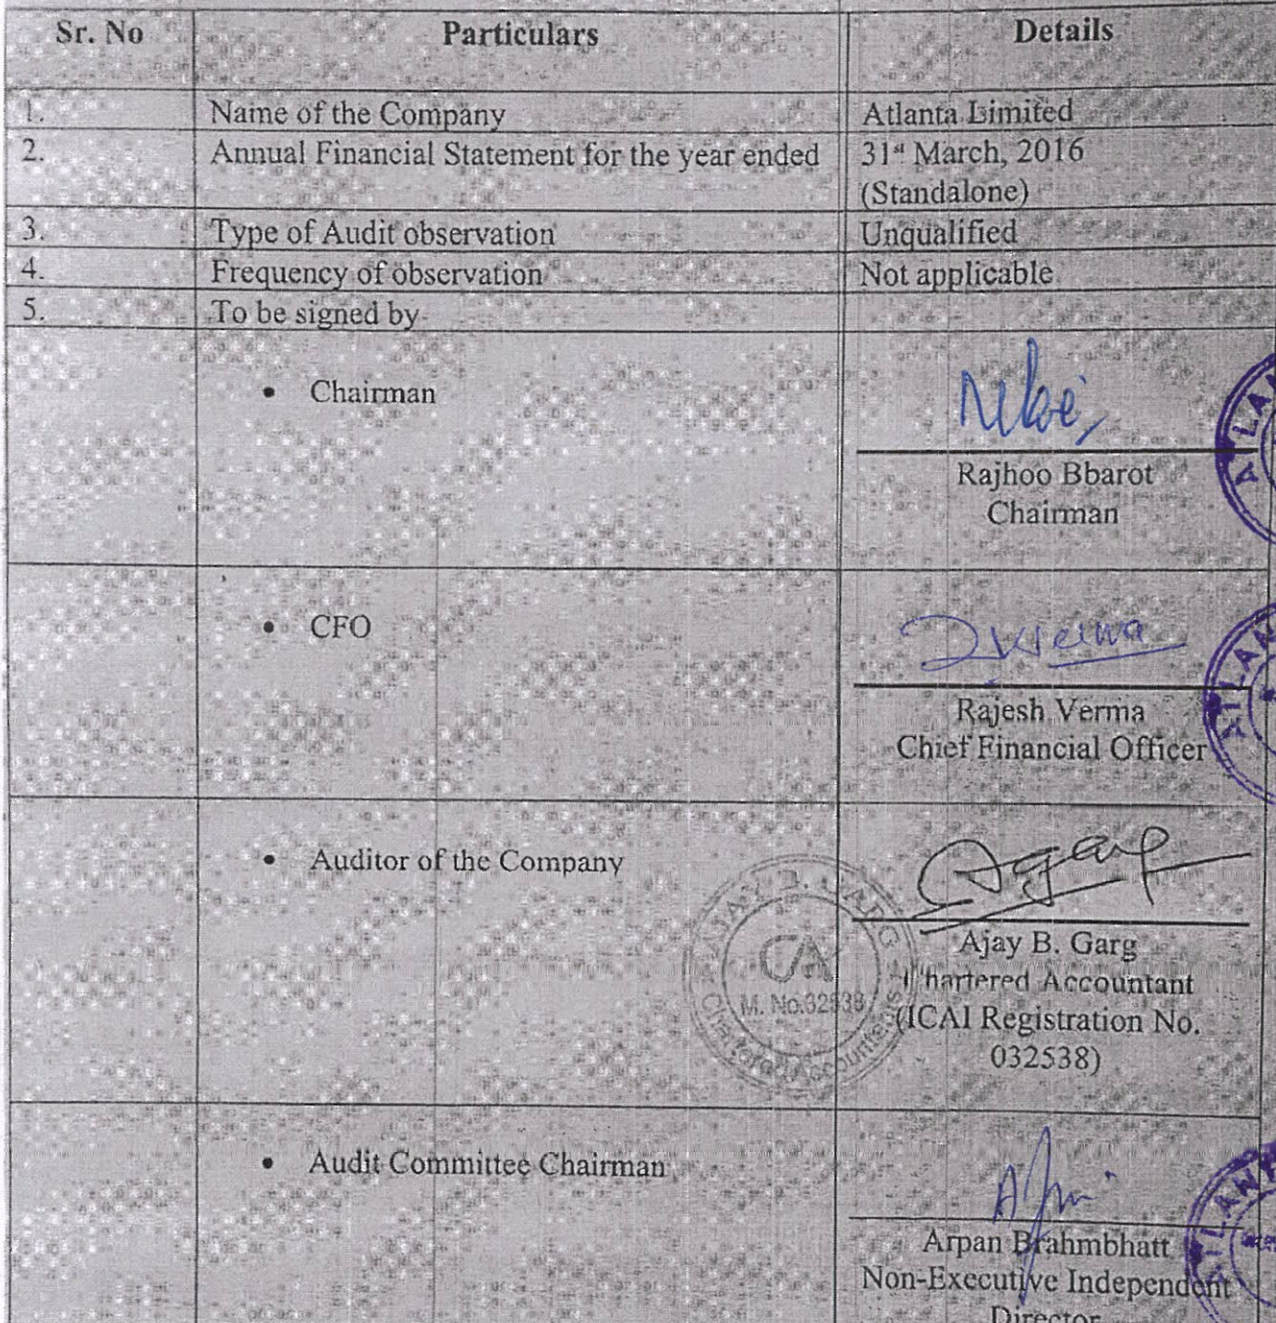 Sr. No Particulars Details
1. Name of the Company Atlanta Limited
2. Annual Financial Statement for the year ended 31st March, 2016
(Standalone)
3. Type of Audit observation Unqualified
4. Frequency of observation Not applicable
5. To be signed by
• Chairman
Rajhoo Bbarot
Chairman
• CFO
Rajesh Verma
Chief Financial Officer
• Auditor of the Company
AJAY B. GARG
CA
M. No.32538
Chartered Accountants
Ajay B. Garg
Chartered Accountant
(ICAI Registration No.
032538)
• Audit Committee Chairman
Arpan Brahmbhatt
Non-Executive Independent
Director